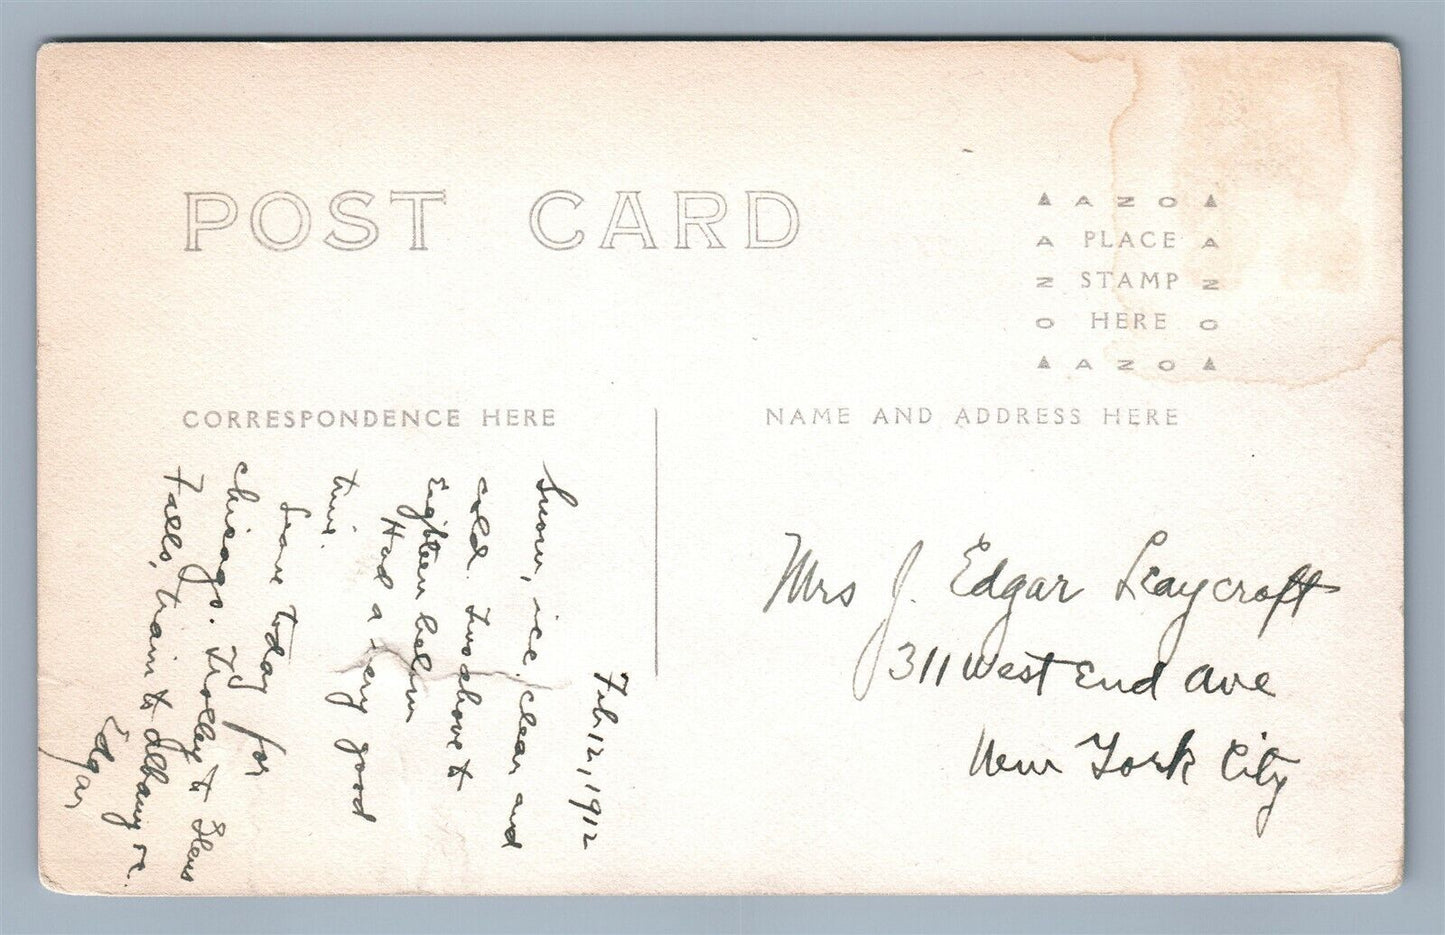 POST CARD
AZO
PLACE
STAMP
HERE
AZO
AZO
AZO
CORRESPONDENCE HERE
NAME AND ADDRESS HERE
Feb. 12, 1912
Snow, ice. clear and
cold. Two above to
Eighteen below
Had a very good
time.
Leave today for
Chicago. Trolley to Glens
Falls, train to Albany etc.
Edgar
Mrs J. Edgar Leaycroft
311 West End Ave
New York City